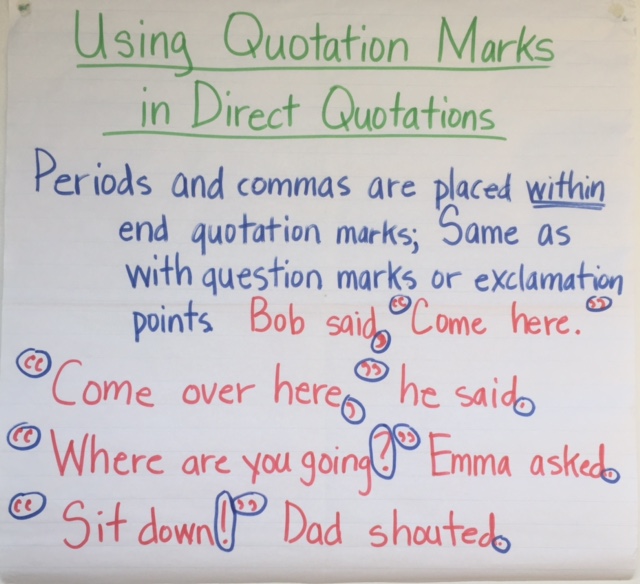 Using Quotation Marks
in Direct Quotations
Periods and commas are placed within
end quotation marks; Same as
with question marks or exclamation
points Bob said, “Come here.”
“Come over here,” he said.
“Where are you going?” Emma asked.
“Sit down!” Dad shouted.